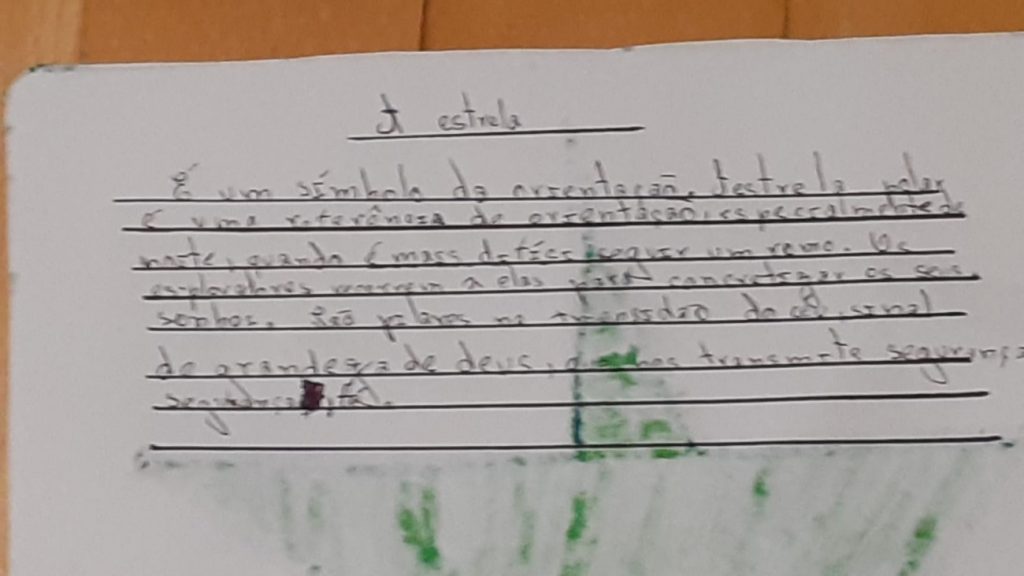 A estrela
É um símbolo da orientação. A estrela polar
é uma referência de orientação, especialmente de
noite, quando é mais difícil seguir um rumo. Os
exploradores recorrem a elas para concretizar os seus
sonhos. São pilares na imensidão do céu, sinal
de grandeza de deus, que nos transmite segurança
fé.